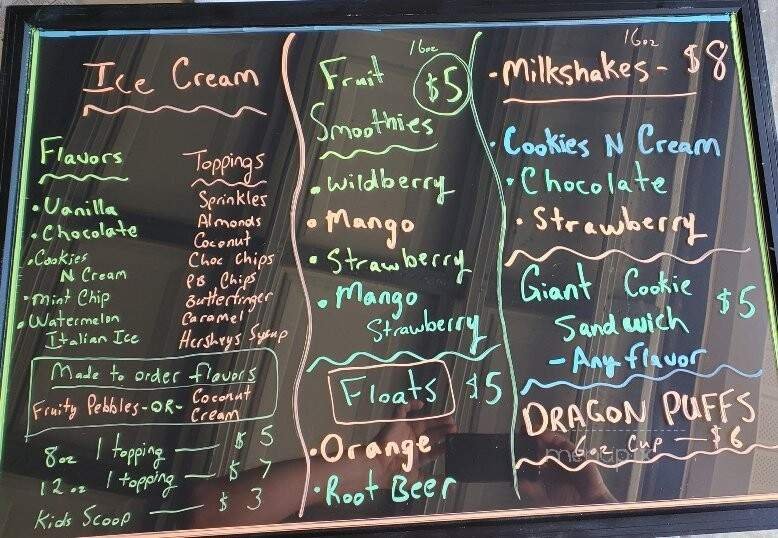 Ice Cream
Flavors
• Vanilla
• Chocolate
• Cookies
N Cream
• Mint Chip
• Watermelon
Italian Ice
Toppings
Sprinkles
Almonds
Coconut
Choc Chips
PB Chips
Butterfinger
Caramel
Hershrys Syrup
Made to order flavors
Fruity Pebbles -OR- Coconut
Cream
8oz 1 topping — $5
12oz 1 topping — $7
Kids Scoop — $3
16oz
Fruit $5
Smoothies
• Wildberry
• Mango
• Strawberry
• Mango
Strawberry
Floats $5
• Orange
• Root Beer
16oz
• Milkshakes - $8
• Cookies N Cream
• Chocolate
• Strawberry
Giant Cookie
Sandwich $5
- Any flavor
DRAGON PUFFS
6oz cup — $6